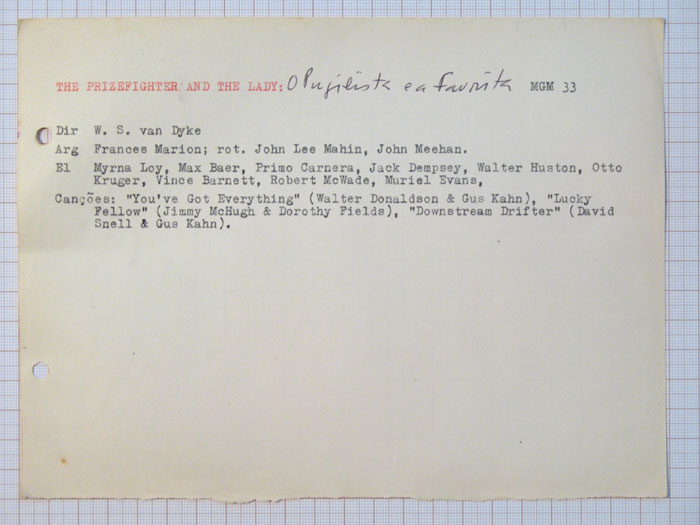 THE PRIZEFIGHTER AND THE LADY: O Pugilista e a Favorita MGM 33
Dir W. S. van Dyke
Arg Frances Marion; rot. John Lee Mahin, John Meehan.
El Myrna Loy, Max Baer, Primo Carnera, Jack Dempsey, Walter Huston, Otto
Kruger, Vince Barnett, Robert McWade, Muriel Evans,
Canções: "You've Got Everything" (Walter Donaldson & Gus Kahn), "Lucky
Fellow" (Jimmy McHugh & Dorothy Fields), "Downstream Drifter" (David
Snell & Gus Kahn).